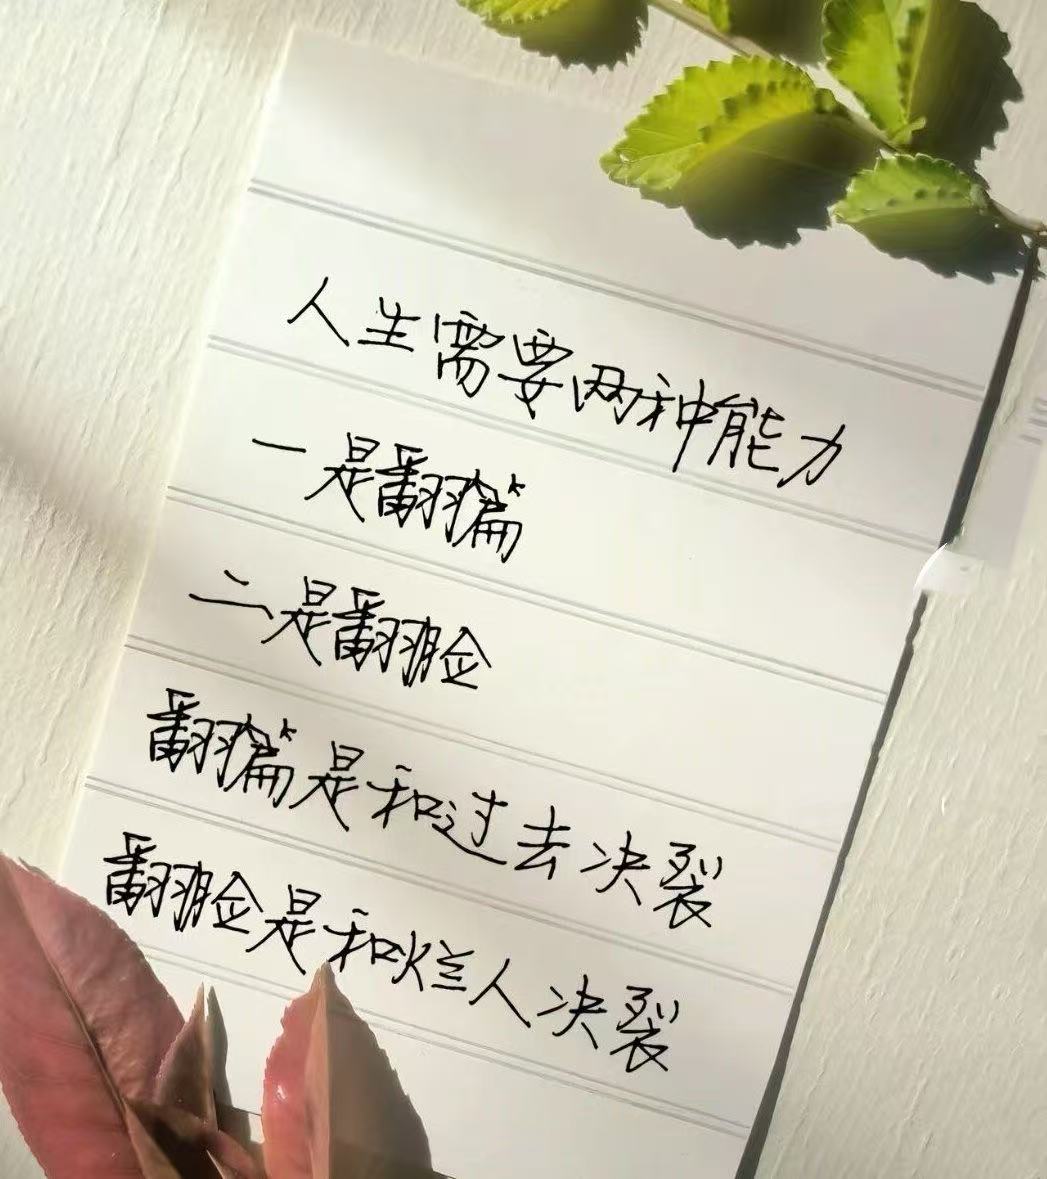 人生需要两种能力
一是翻篇
二是翻脸
翻篇是和过去决裂
翻脸是和烂人决裂